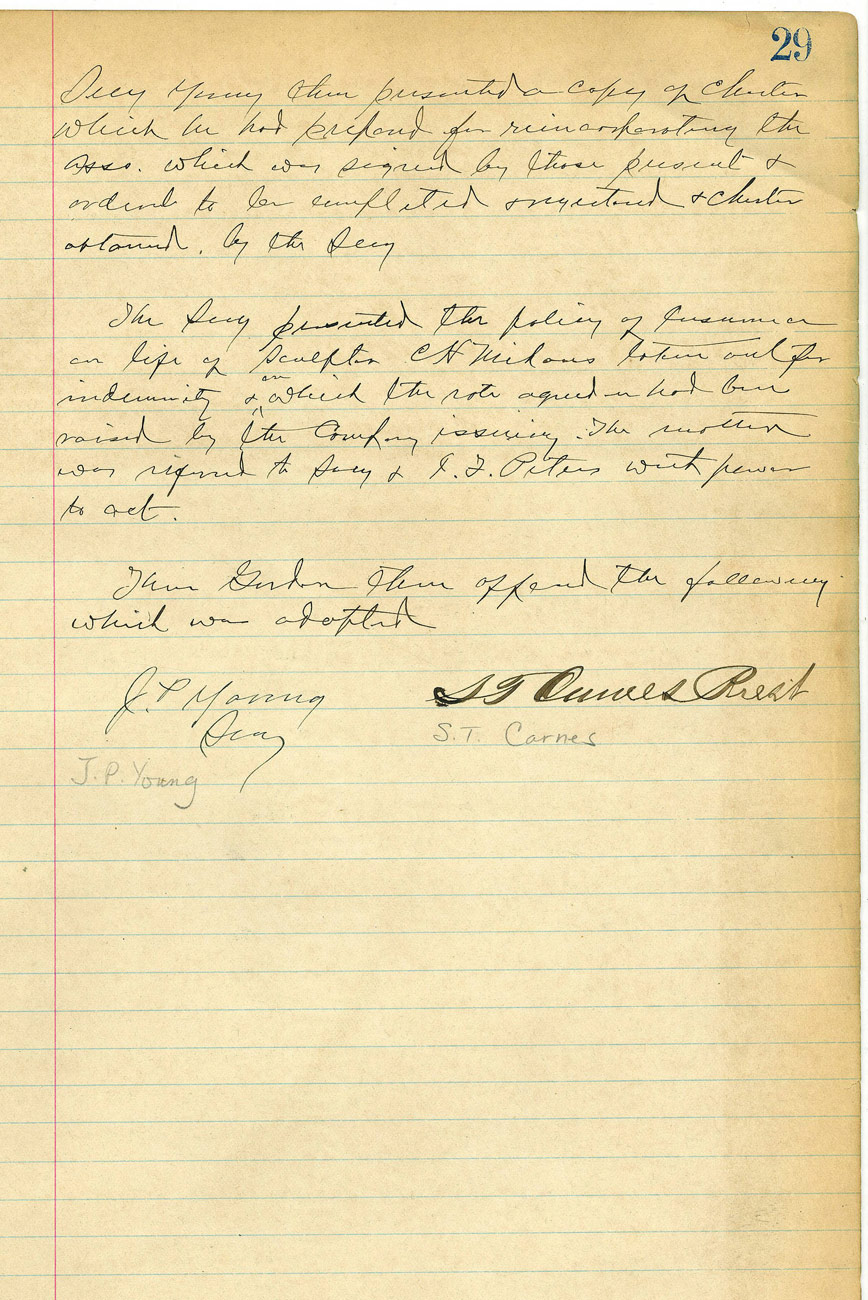 29
Secy Young then presented a copy of Charter
which he had prepared for reincorporating the
Asso. which was signed by those present &
ordered to be completed & registered & charter
obtained, by the Secy
The Secy presented the policy of insurance
on life of Sculptor C H Niehaus taken out for
indemnity & on which the rate agreed on had been
raised by the Company issuing. The matter
was referred to Secy & I. F. Peters with power
to act.
Gordon then offered the following
which was adopted
J. P. Young
Secy
S T Carnes Prest
S.T. Carnes
J.P. Young